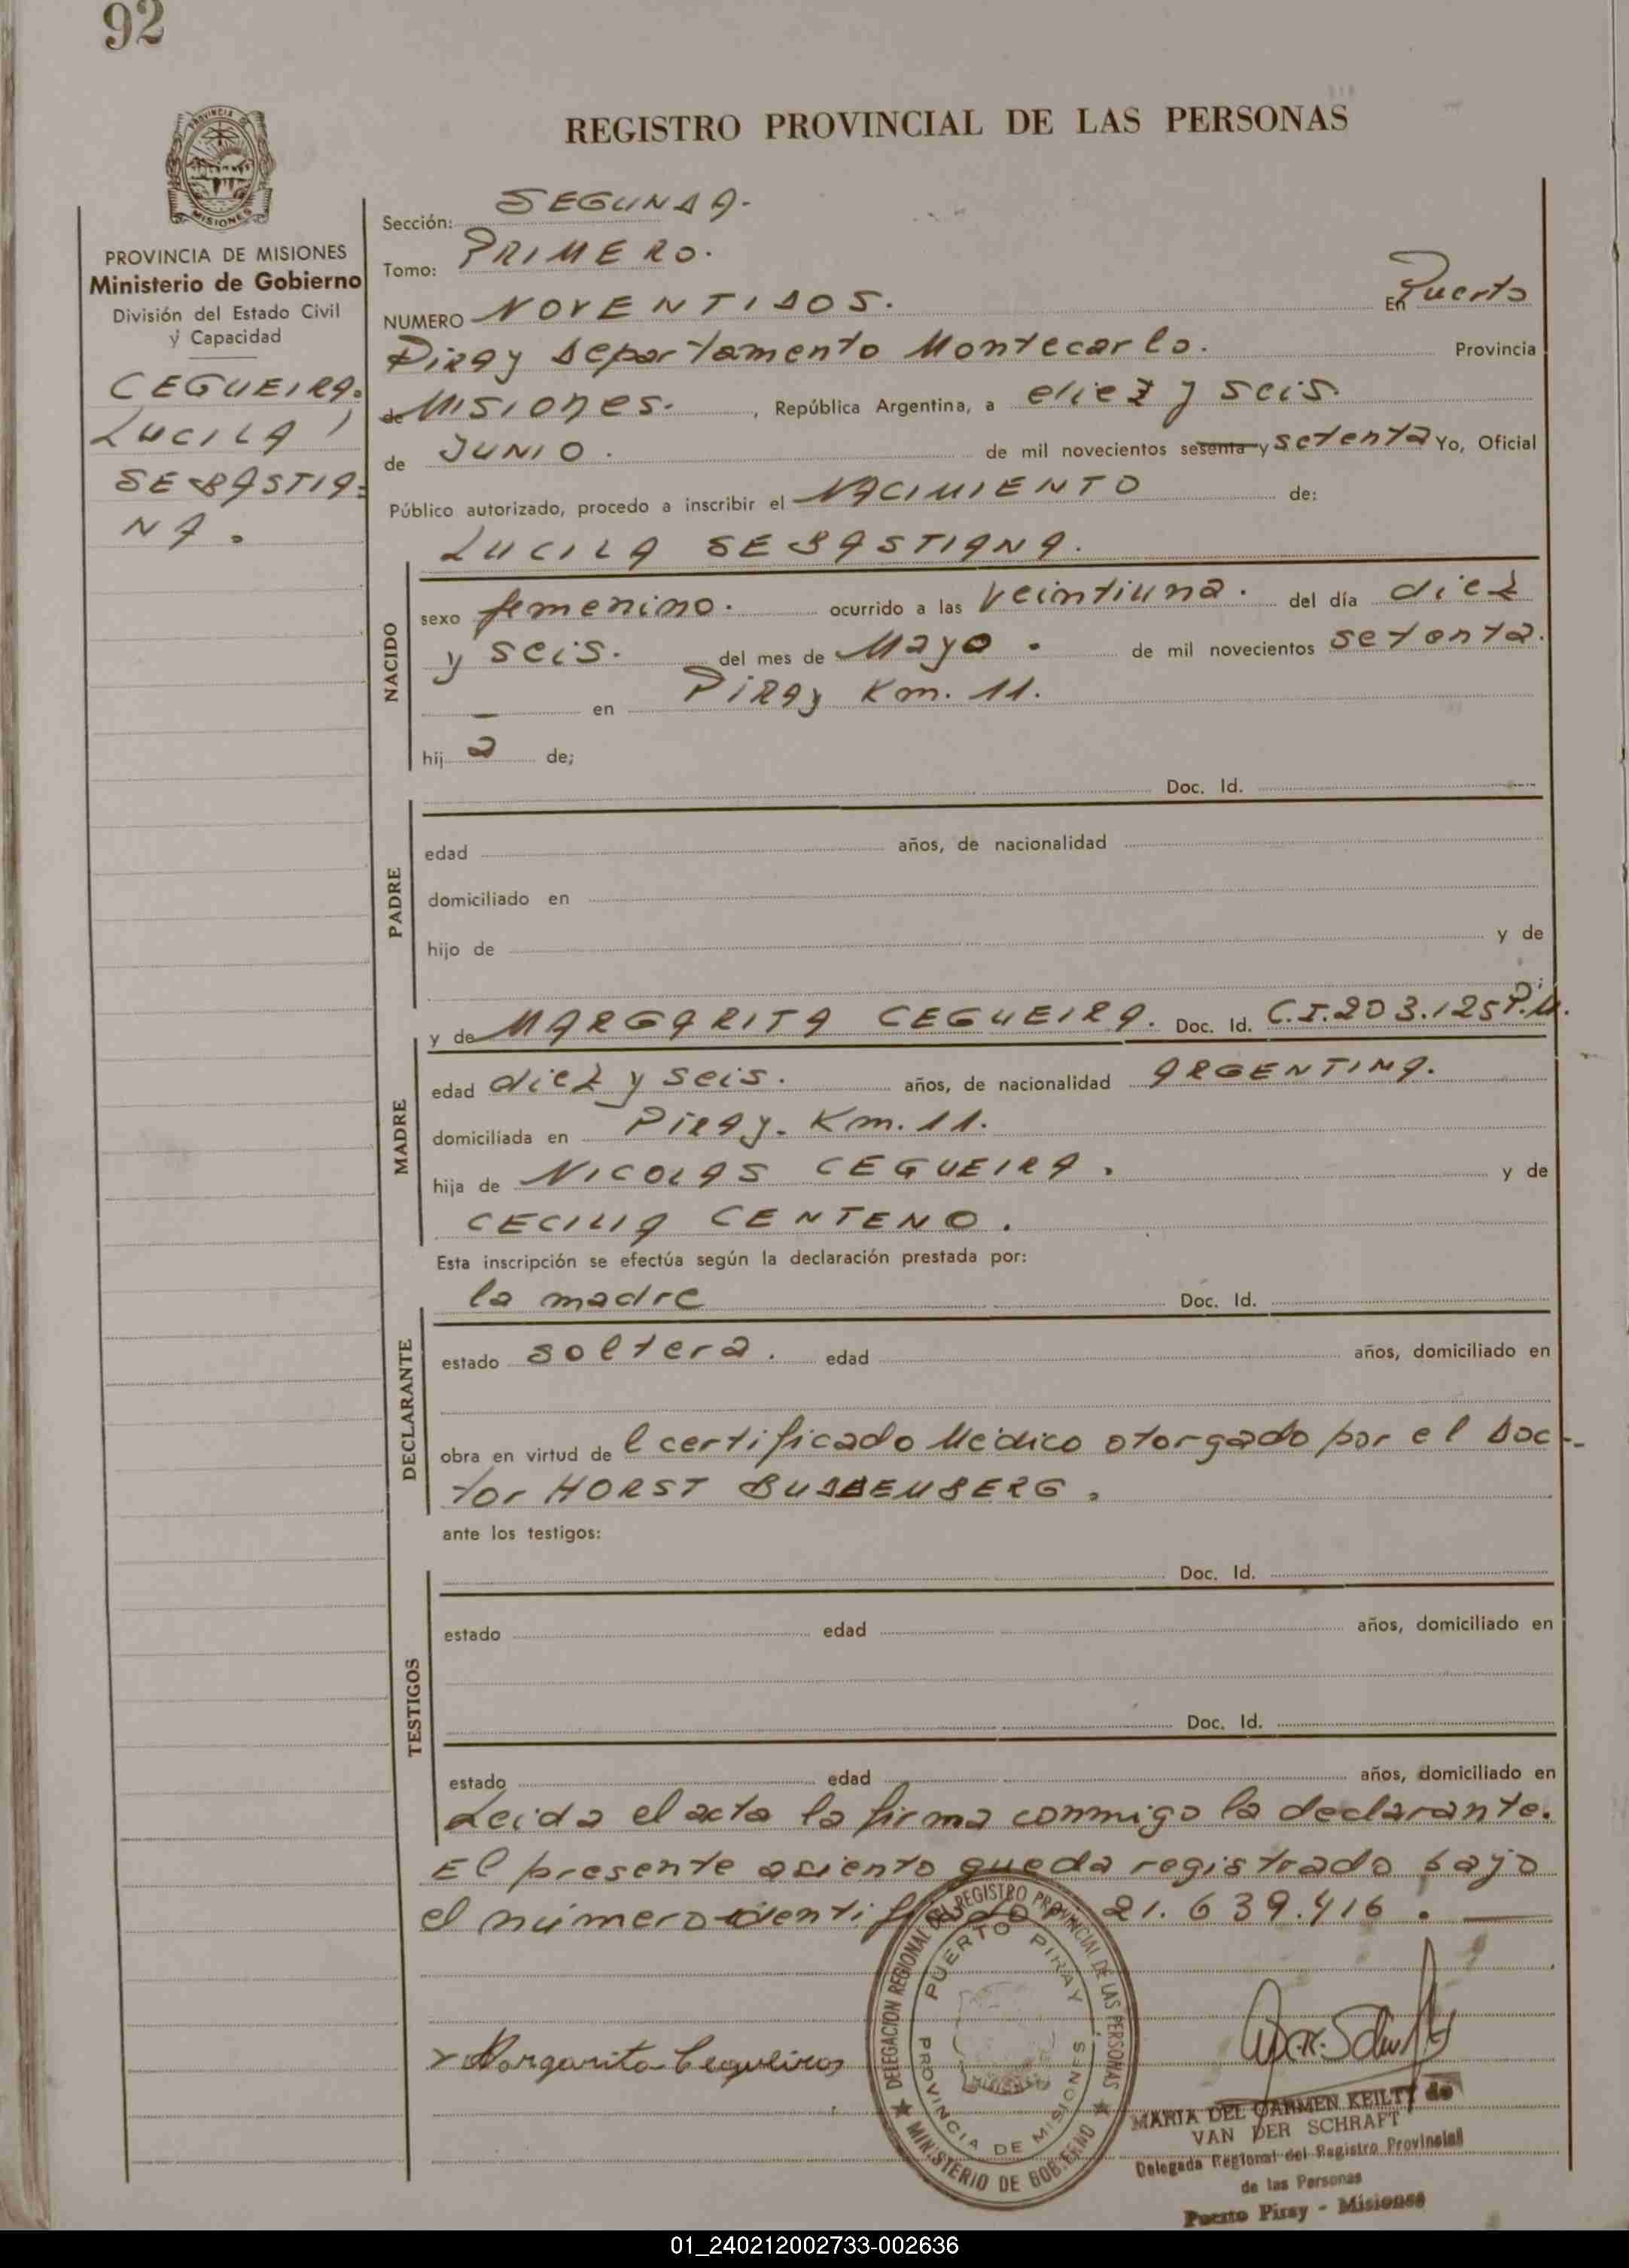 92
REGISTRO PROVINCIAL DE LAS PERSONAS
PROVINCIA DE MISIONES
Ministerio de Gobierno
División del Estado Civil
y Capacidad
CEGUEIRA.
LUCILA
SEBASTIA=
NA.
Sección: SEGUNDA.
Tomo: PRIMERO.
NUMERO NOVENTIDOS. En Puerto
Piray Departamento Montecarlo. Provincia
de Misiones. , República Argentina, a diez y seis.
de JUNIO. de mil novecientos sesenta y setenta Yo, Oficial
Público autorizado, procedo a inscribir el NACIMIENTO de:
LUCILA SEBASTIANA.
NACIDO
sexo femenino. ocurrido a las veintiuna. del día diez
y seis. del mes de Mayo. de mil novecientos setenta.
— en Piray Km. 11.
hij a de;
Doc. Id.
PADRE
edad años, de nacionalidad
domiciliado en
hijo de y de
y de MARGARITA CEGUEIRA. Doc. Id. C.I. 203.125 P.M.
MADRE
edad diez y seis. años, de nacionalidad ARGENTINA.
domiciliada en Piray. Km. 11.
hija de NICOLAS CEGUEIRA. y de
CECILIA CENTENO.
Esta inscripción se efectúa según la declaración prestada por:
la madre Doc. Id.
DECLARANTE
estado soltera. edad años, domiciliado en
obra en virtud de l certificado Médico otorgado por el Doc--
tor HORST
ante los testigos:
Doc. Id.
TESTIGOS
estado edad años, domiciliado en
Doc. Id.
estado edad años, domiciliado en
Leida el acta la firma conmigo la declarante.
El presente asiento queda registrado bajo
el número 21.639.416. —
DELEGACION REGIONAL DEL REGISTRO PROVINCIAL DE LAS PERSONAS
PUERTO PIRAY
PROVINCIA DE MISIONES
★ MINISTERIO DE GOBIERNO ★
Margarita Cegueira
MARIA DEL CARMEN KEILTY de
VAN DER SCHRAFT
Delegada Regional del Registro Provincial
de las Personas
Puerto Piray - Misiones
01_240212002733-002636